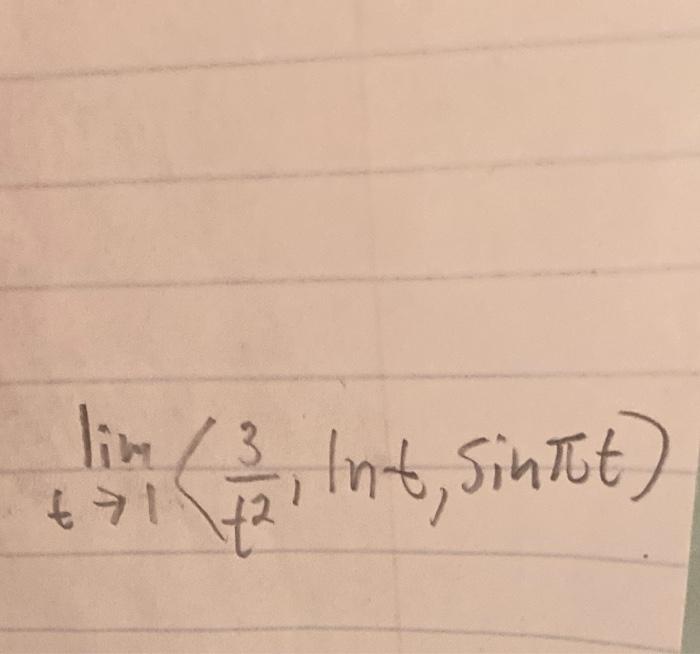 lim t→1 ⟨3/t², ln t, sin πt)